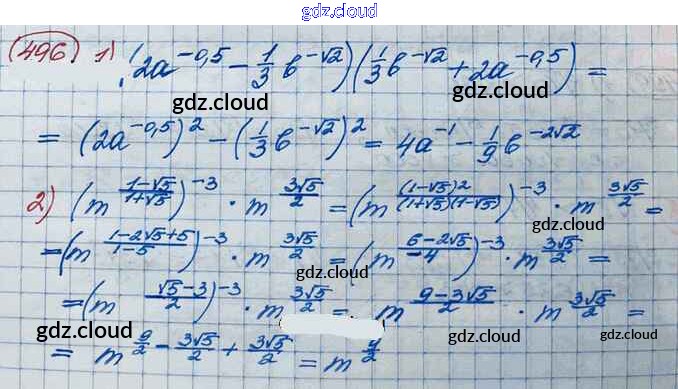 gdz.cloud
gdz.cloud
496 1) (2a^{-0,5} - \frac{1}{3} b^{-√2})(\frac{1}{3} b^{-√2} + 2a^{-0,5}) =
gdz.cloud gdz.cloud
= (2a^{-0,5})^2 - (\frac{1}{3} b^{-√2})^2 = 4a^{-1} - \frac{1}{9} b^{-2√2}
2) (m^{\frac{1-√5}{1+√5}})^{-3} · m^{\frac{3√5}{2}} = (m^{\frac{(1-√5)^2}{(1+√5)(1-√5)}})^{-3} · m^{\frac{3√5}{2}} =
gdz.cloud
= (m^{\frac{1-2√5+5}{1-5}})^{-3} · m^{\frac{3√5}{2}} = (m^{\frac{6-2√5}{-4}})^{-3} · m^{\frac{3√5}{2}} =
gdz.cloud
= (m^{\frac{√5-3}{2}})^{-3} · m^{\frac{3√5}{2}} = m^{\frac{9-3√5}{2}} · m^{\frac{3√5}{2}} =
gdz.cloud gdz.cloud gdz.cloud
= m^{\frac{9}{2} - \frac{3√5}{2} + \frac{3√5}{2}} = m^{\frac{9}{2}}
gdz.cloud